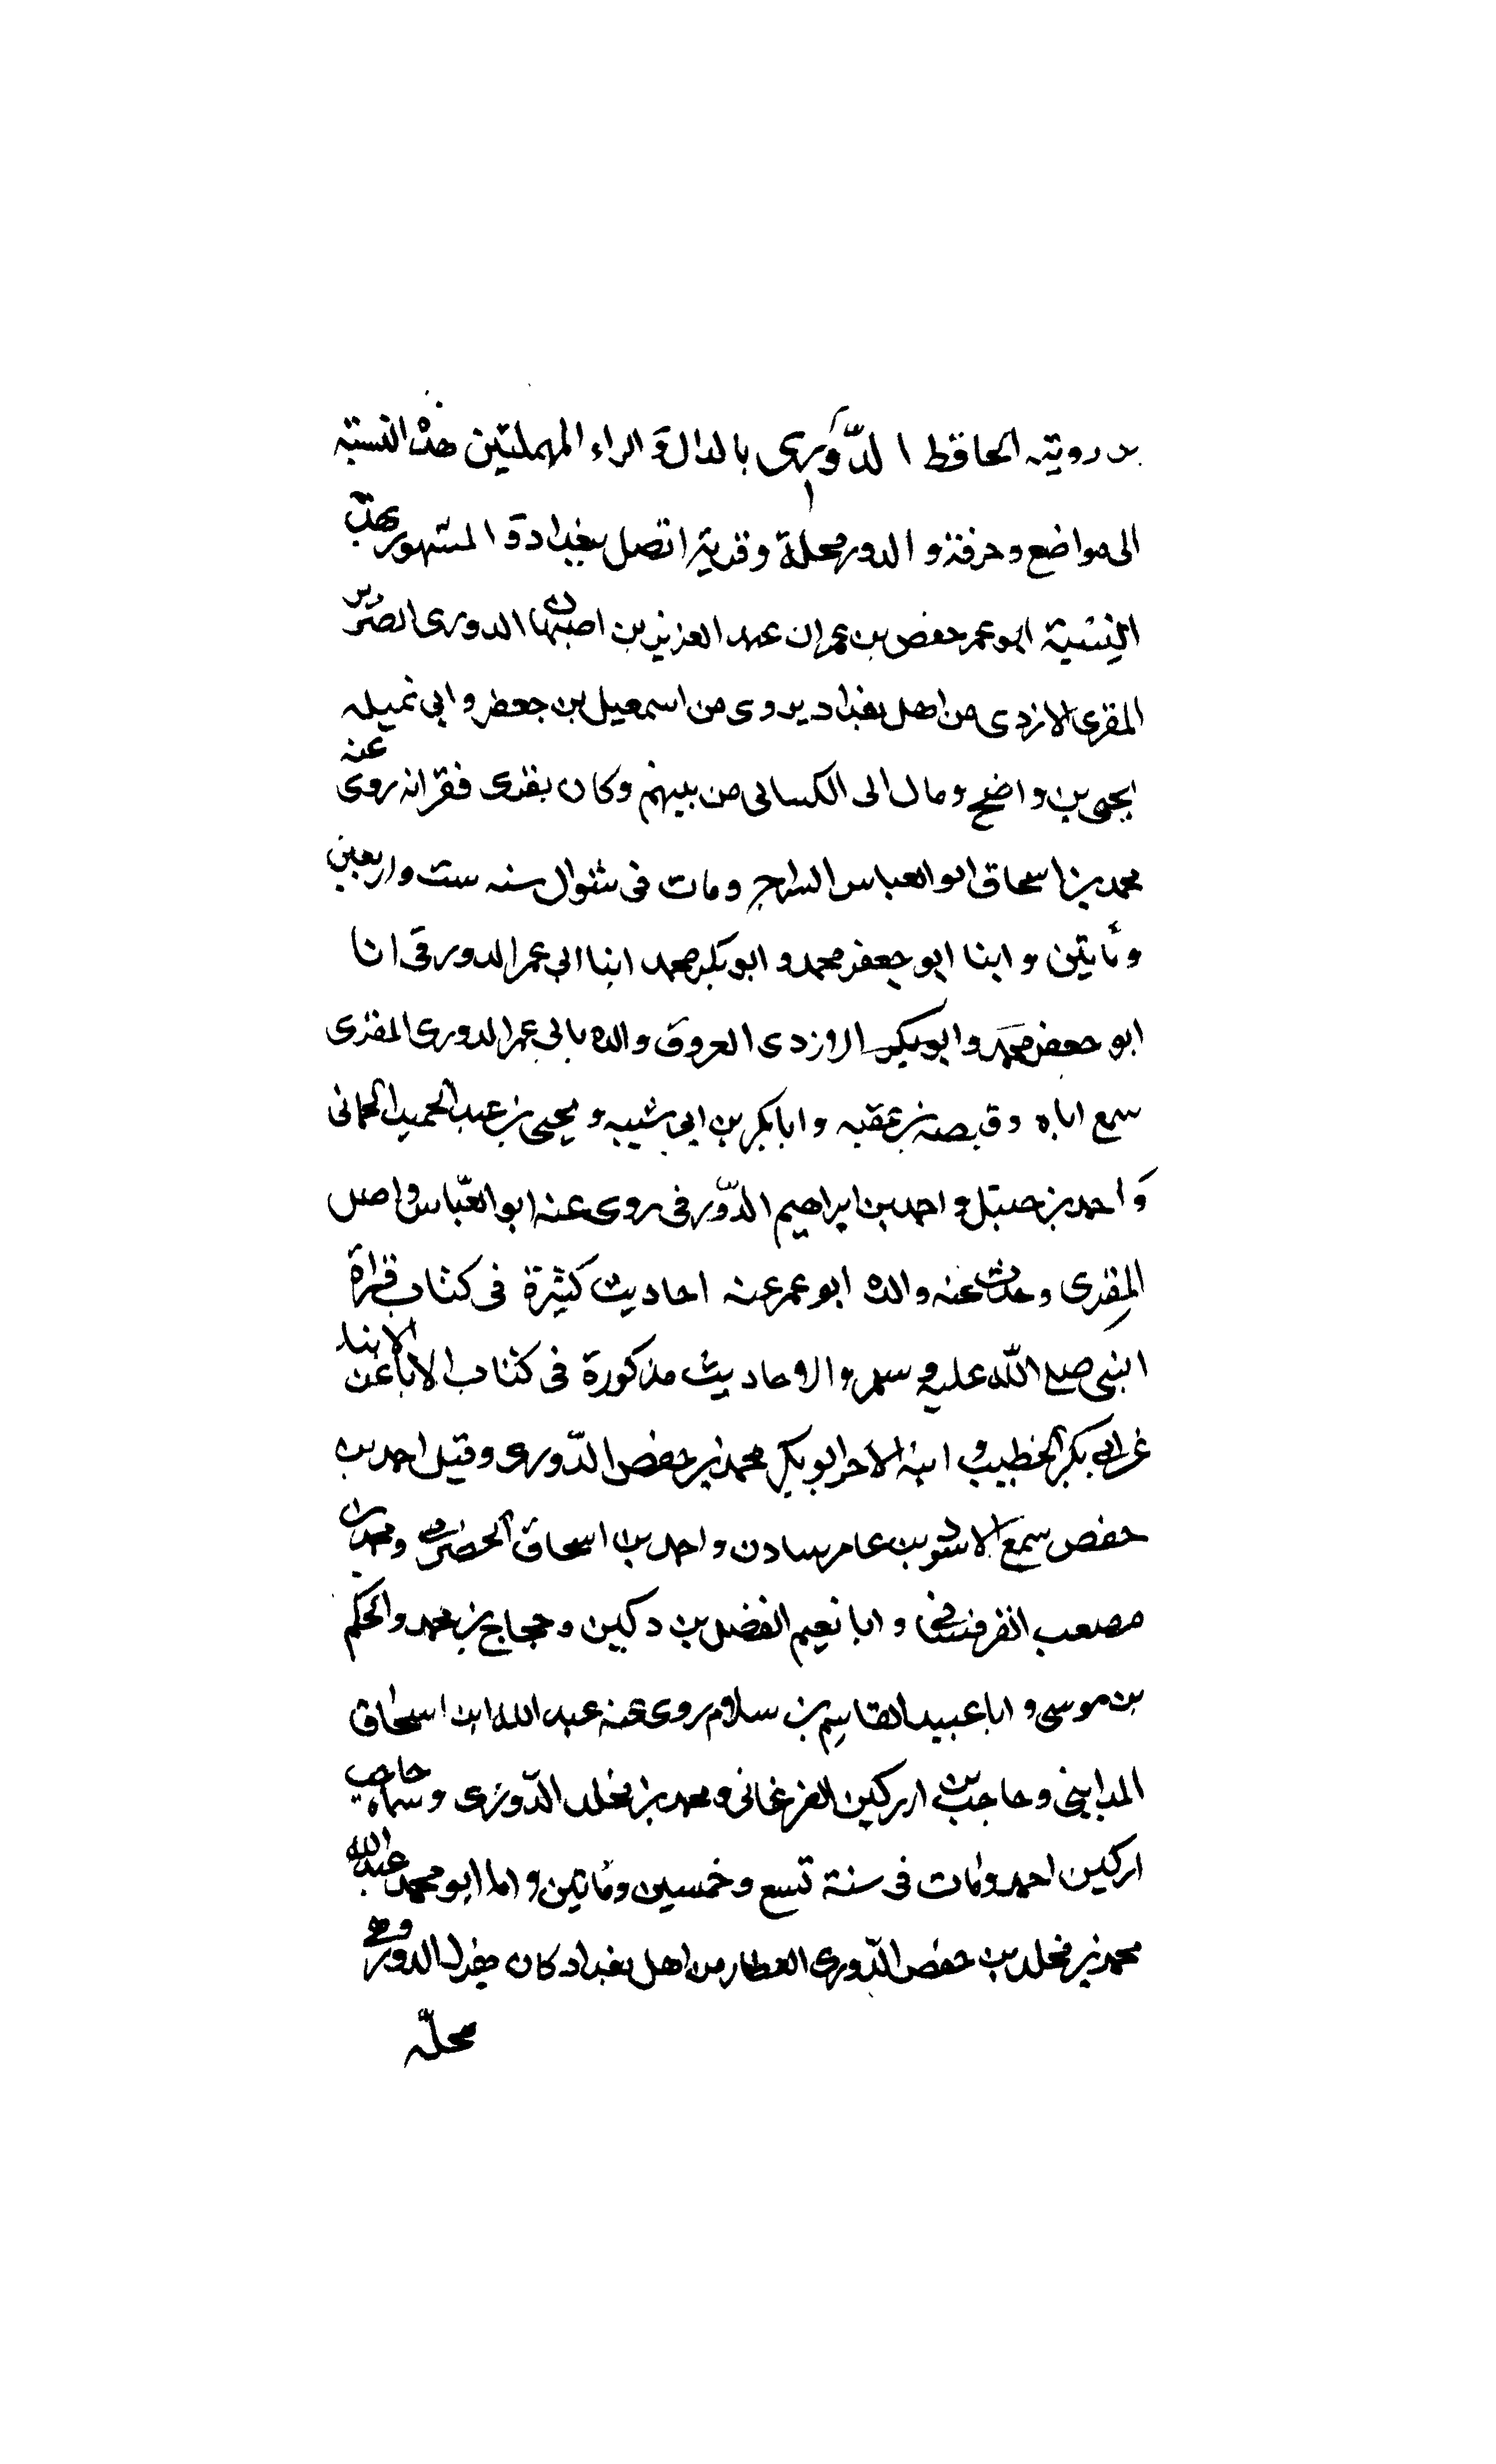 بن رويته الحافظ الدّورى بالدال و الراء المهملتين هذه النسبته
الى مواضع وحرفة و الدور محلة و قرية اتصل ببغداد و المشهور بهذه
النسبة ابو عمر حفص بن عمران عبد العزيز بن اصبهان الدورى الضرير
المقرى الازدى من اهل بغداد يروى من اسمعيل بن جعفر و ابى تميله
يحيى بن واضح و مال الى الكسائى من بينهم وكان يقرى فقرانه روى عنه
محمد بن اسحاق ابو العباس السراج ومات فى شوال سنه ست واربعين
ومأتين و ابنا ابو جعفر محمد و ابو بكر محمد ابنا ابى عمر الدورقى انا
ابو جعفر محمد و ابو بكر الازدى العروف والده بابى عمر الدورى المقرى
سمع اباه و قبصه بن عقبه و ابا بكر بن ابى شيبه و يحيى بن عبد الحميد الحمانى
و احمد بن حنبل و احمد بن ابراهيم الدّورقى روى عنه ابو العبّاس واصل
المقرى وحدث عنه والده ابو عمر عنه احاديث كثيرة فى كتاب قراة
النبى صلع الله عليه و سلم و الاحاديث مذكورة فى كتاب الابا عن الابنا
غرابى بكر الخطيب و ابنه الاخر ابو بكر محمد بن حفص الدّورى وقيل احمد بن
حفص سمع الاسود بن عامر سادن و احمد بن اسحاق الحضرمى و محمد بن
مصعب القرقسانى و ابا نعيم الفضل بن دكين و حجاج بن محمد والحكم
بن موسى و ابا عبيد القاسم بن سلام روى عنه عبد الله ابن اسحاق
المداينى و حاجب بن اركين الفرغانى و محمد بن مخلد الدّورى و سماه حاجب
اركين احمد ومات فى سنة تسع و خمسين ومأتين و اما ابو محمد عبد الله
محمد بن مخلد بن حفص الدّورى العطار من اهل بغداد كان ينزل الدور وهى
محلّه